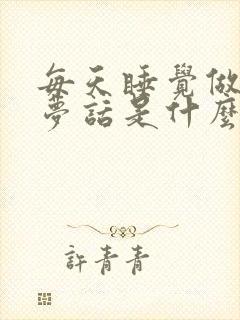 每天睡覺做
夢話是什麼
許青青